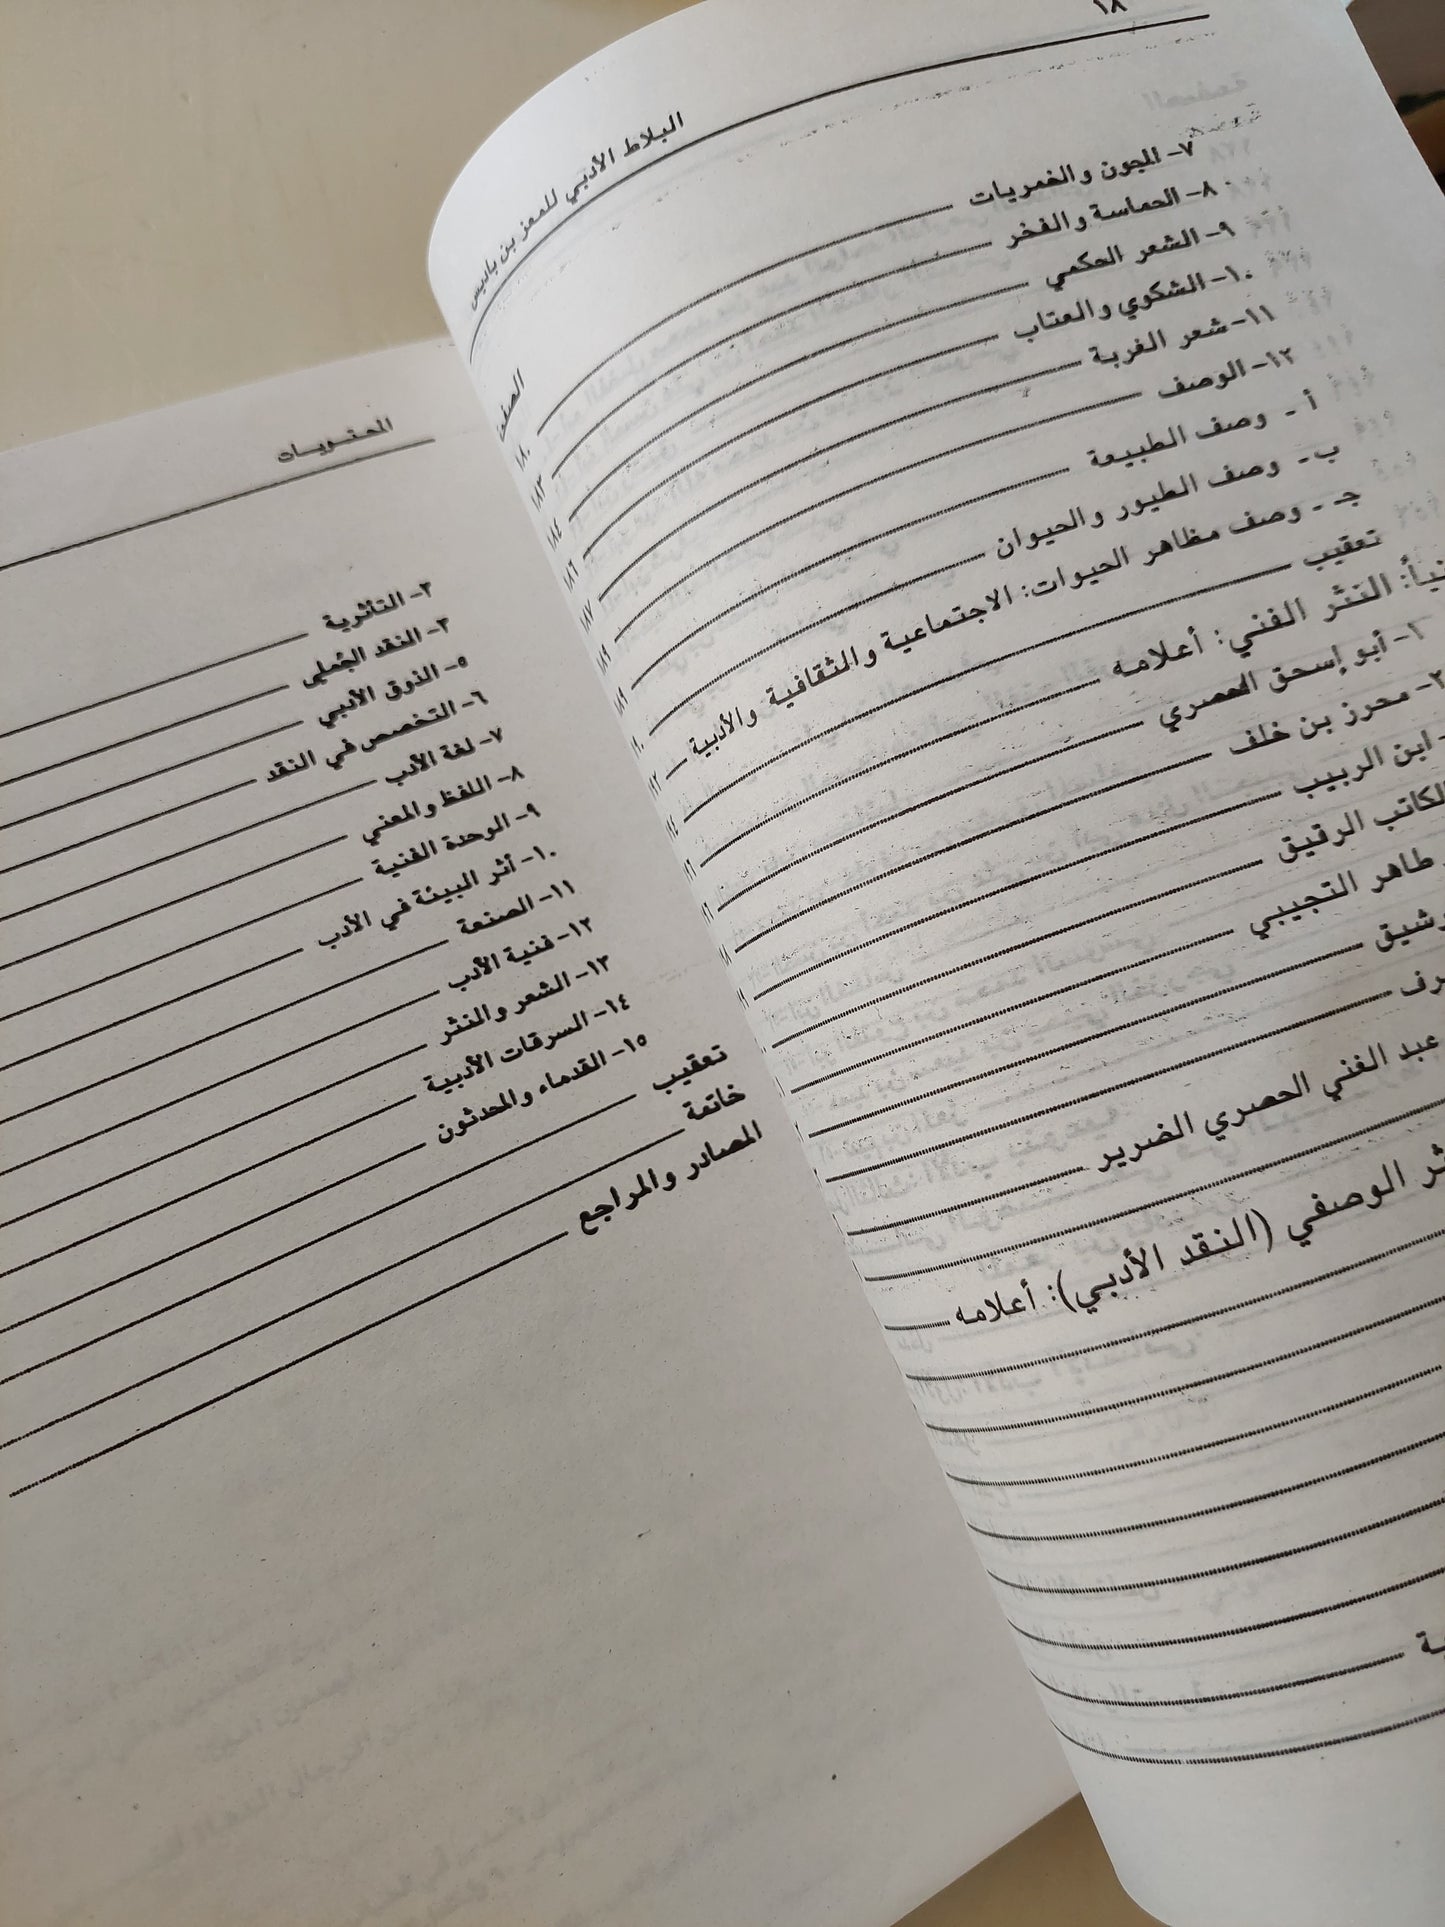 ١٨
البلاط الأدبي للمعز بن باديس
الصفحة
٧- المجون والخمريات ١٨٠
٨- الحماسة والفخر ١٨٣
٩- الشعر الحكمي ١٨٤
١٠- الشكوي والعتاب ١٨٦
١١- شعر الغربة ١٨٧
١٢- الوصف ١٨٩
أ - وصف الطبيعة ١٨٩
ب - وصف الطيور والحيوان
جـ - وصف مظاهر الحيوات: الاجتماعية والثقافية والأدبية
تعقيب
النثر الفني: أعلامه
١- أبو إسحق الحصري
٢- محرز بن خلف
ابن الربيب
الكاتب الرقيق
طاهر التجيبي
رشيق
رف
عبد الغني الحصري الضرير
الوصفي (النقد الأدبي): أعلامه
ية
المحتويات
٢- التأثرية
٣- النقد الجُملي
٥- الذوق الأدبي
٦- التخصص في النقد
٧- لغة الأدب
٨- اللفظ والمعني
٩- الوحدة الفنية
١٠- أثر البيئة في الأدب
١١- الصنعة
١٢- فنية الأدب
١٣- الشعر والنثر
١٤- السرقات الأدبية
١٥- القدماء والمحدثون
تعقيب
خاتمة
المصادر والمراجع